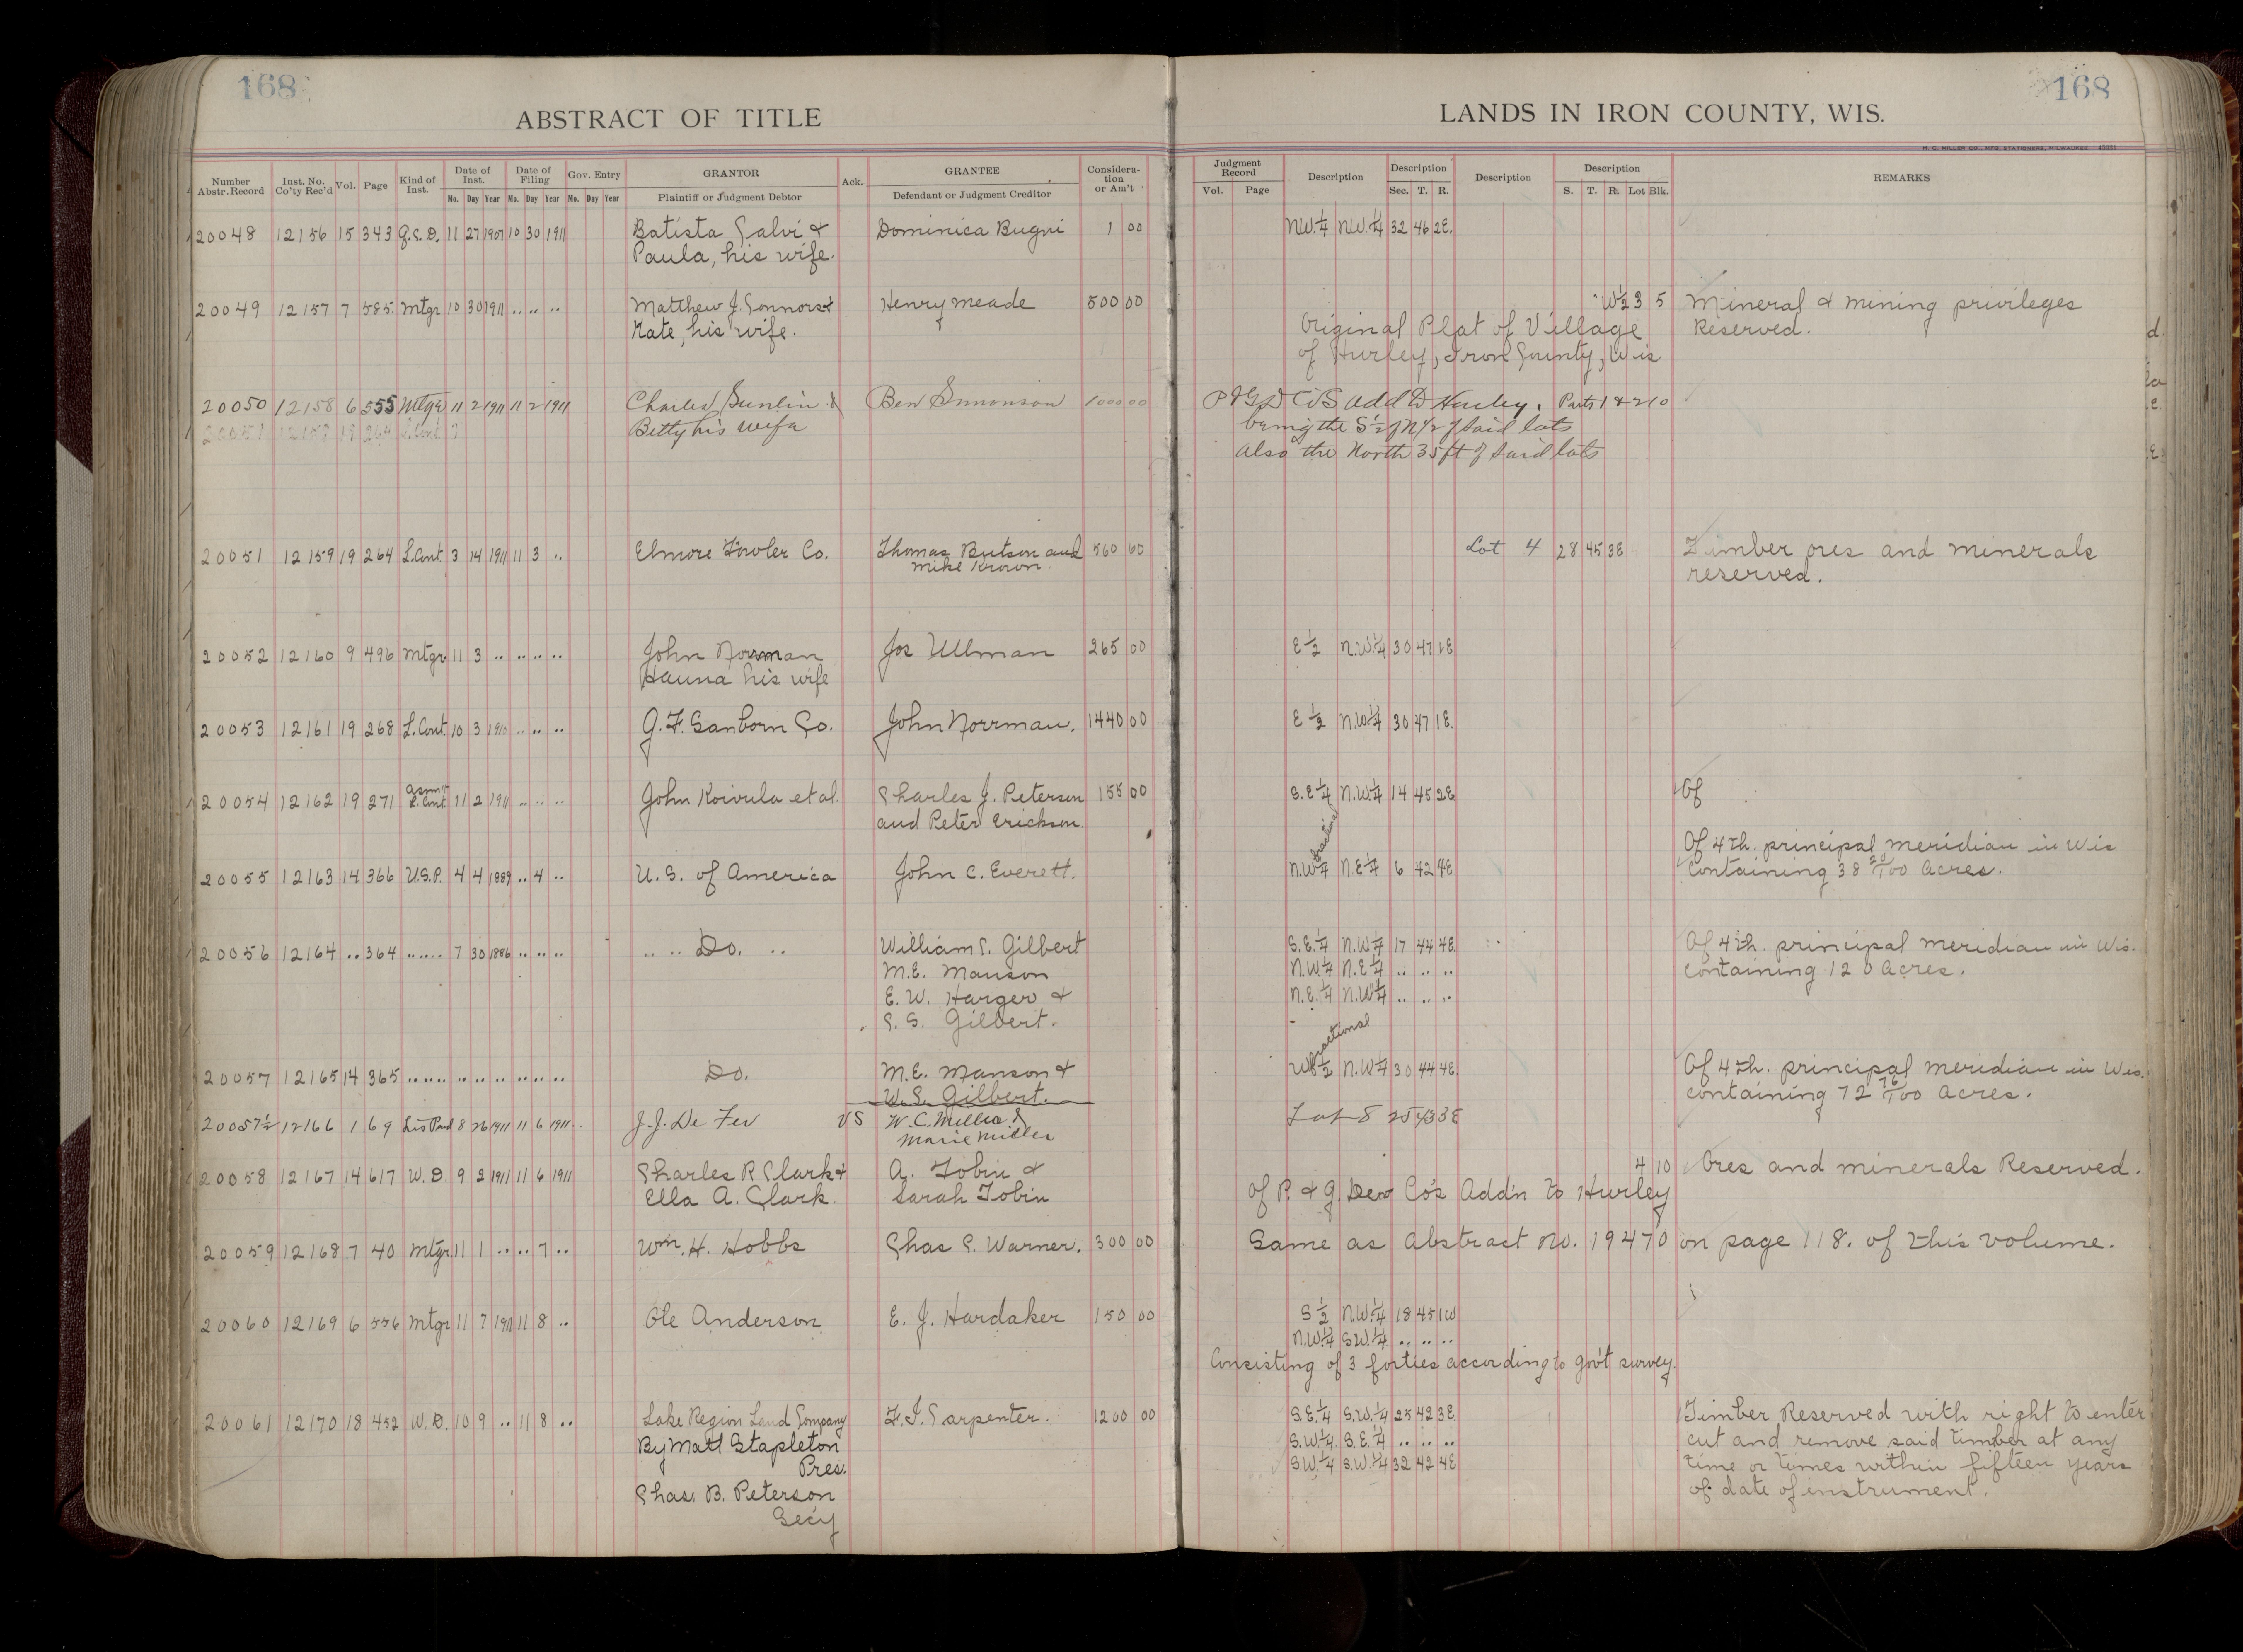 168
168
ABSTRACT OF TITLE
LANDS IN IRON COUNTY, WIS.
H. C. MILLER CO., MFG. STATIONERS, MILWAUKEE
Number Abstr. Record Inst. No. Co'ty Rec'd Vol. Page Kind of Inst. Date of Inst. Mo. Day Year Date of Filing Mo. Day Year Gov. Entry Mo. Day Year GRANTOR Plaintiff or Judgment Debtor Ack. GRANTEE Defendant or Judgment Creditor Considera-tion or Am't
Judgment Record Vol. Page Description Description Sec. T. R. Description Description S. T. R. Lot Blk. REMARKS
20048 12156 15 343 Q.C.D. 11 27 1907 10 30 1911 Batista Calvi & Dominica Bugni 1 00 N.W.¼ N.W.¼ 32 46 2E.
Paula, his wife.
20049 12157 7 585 Mtge 10 30 1911 .. .. .. Matthew J. Connors & Henry Meade 500 00 W½ 3 5 Mineral & mining privileges
Kate, his wife. Original Plat of Village Reserved.
of Hurley, Iron County, Wis
20050 12158 6 555 Mtge 11 2 1911 11 2 1911 Charles Sunlin & Ben Simonson 1000 00 P & G D Co's Add to Hurley. Parts 1 & 2 10
20051 12159 19 264 L.Cont 3 Betty his wife being the S½ of N½ of said lots
Also the North 35 ft of said lots
20051 12159 19 264 L.Cont 3 14 1911 11 3 .. Elmore Fowler Co. Thomas Butson and 560 60 Lot 4 28 45 3E Timber ores and minerals
Mike Krown. reserved.
20052 12160 9 496 Mtge 11 3 .. .. .. .. John Norrman Jos Ullman 265 00 E½ N.W.¼ 30 47 1E
Hanna his wife
20053 12161 19 268 L.Cont. 10 3 1910 .. .. .. G.F. Sanborn Co. John Norrman. 1440 00 E½ N.W.¼ 30 47 1E.
20054 12162 19 271 Asmt L.Cont 11 2 1911 .. .. .. John Koivula et al. Charles J. Peterson 155 00 S.E¼ N.W.¼ 14 45 2E Of
and Peter Erickson.
fractional Of 4th. principal meridian in Wis
20055 12163 14 366 U.S.P. 4 4 1889 .. 4 .. U.S. of America John C. Everett. N.W¼ N.E¼ 6 42 4E containing 38 20/100 Acres.
20056 12164 .. 364 ...... 7 30 1886 .. .. .. .. .. Do. .. William S. Gilbert S.E.¼ N.W.¼ 17 44 4E. Of 4th. principal meridian in Wis.
M.E. Manson N.W.¼ N.E.¼ .. .. .. containing 120 Acres.
E.W. Harger & N.E.¼ N.W.¼ .. .. ..
C.S. Gilbert.
fractional
20057 12165 14 365 ...... .. .. .. .. .. .. Do. M.E. Manson & W½ N.W¼ 30 44 4E. Of 4th. principal meridian in Wis.
W.S. Gilbert. containing 72 76/100 Acres.
20057½ 12166 1 69 Lis Pend 8 26 1911 11 6 1911 J.J. De Fer VS W.C. Miller & Lot 8 25 43 3E
Marie Miller
20058 12167 14 617 W.D. 9 2 1911 11 6 1911 Charles R Clark & A. Tobin & 4 10 Ores and minerals Reserved.
Ella A. Clark. Sarah Tobin Of P. & G. Dev Co's Add'n to Hurley
20059 12168 7 40 Mtge 11 1 .. .. 7 .. Wm. H. Hobbs Chas S. Warner. 300 00 Same as Abstract No. 19470 on page 118. of this volume.
20060 12169 6 556 Mtge 11 7 1911 11 8 .. Ole Anderson E. J. Hardaker 150 00 S½ N.W.¼ 18 45 1W
N.W.¼ S.W.¼ .. .. ..
Consisting of 3 forties according to gov't survey.
20061 12170 18 452 W.D. 10 9 .. 11 8 .. Lake Region Land Company F.J. Carpenter. 1200 00 S.E.¼ S.W.¼ 25 42 3E. Timber Reserved with right to enter
By Matt Stapleton S.W.¼ S.E.¼ .. .. .. cut and remove said timber at any
Pres. S.W.¼ S.W.¼ 32 42 4E time or times within fifteen years
Chas. B. Peterson of date of instrument.
Sec'y